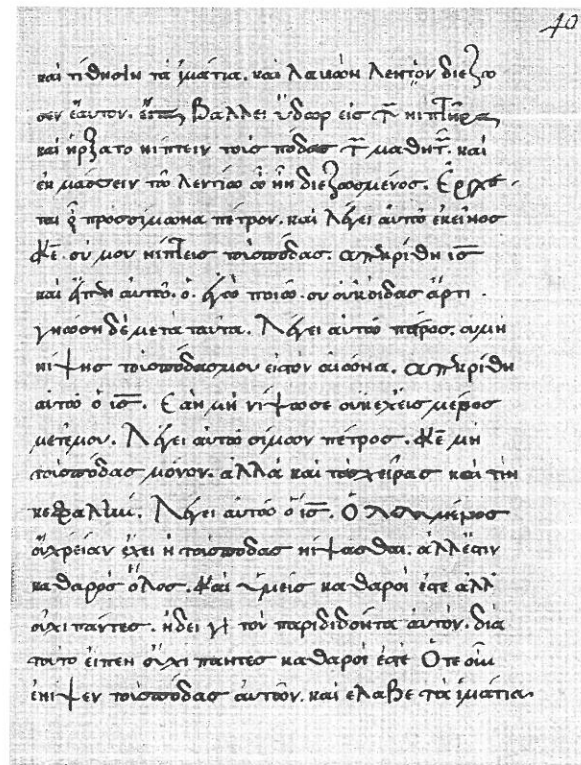 40
καὶ τίθησιν τὰ ἱμάτια. καὶ λαβὼν λέντιον διέζω
σεν ἑαυτόν. εἶτα βάλλει ὕδωρ εἰς τ̅ νιπτῆρα
καὶ ἤρξατο νίπτειν τοὺς πόδας τ̅ μαθητ̅. καὶ
ἐκμάσσειν τῶ λεντίω ὧ ἦν διεζωσμένος. Ερχε
ται οὖν πρὸς σίμωνα πέτρον. καὶ λέγει αὐτῶ ἐκεῖνος
κε̅ σύ μου νίπτεις τοὺς πόδας. απεκρίθη ις̅
καὶ εἶπεν αὐτῶ. ὃ ἐγὼ ποιῶ. συ οὐκ οἶδας ἄρτι.
γνώση δὲ μετὰ ταῦτα. Λέγει αὐτῶ πέτρος. ου μὴ
νίψης τοὺς πόδας μου εἰς τὸν αἰῶνα. απεκρίθη
αὐτῶ ὁ ις̅. Εὰν μὴ νίψω σε οὐκ ἔχεις μέρος
μετ ἐμοῦ. Λέγει αὐτῶ σίμων πέτρος. κε̅ μὴ
τοὺς πόδας μόνον. ἀλλὰ καὶ τὰς χεῖρας καὶ τὴν
κεφαλήν. Λέγει αὐτῶ ὁ ις̅. Ὁ λελουμένος
οὐ χρείαν ἔχει ἢ τοὺς πόδας νίψασθαι. ἀλλ ἔστιν
καθαρὸς ὅλος. Καὶ ὑμεῖς καθαροί ἐστε ἀλλ
οὐχὶ πάντες. ἤδει γὰρ τὸν παριδιδόντα αὐτόν. διὰ
τοῦτο εἶπεν οὐχὶ πάντες καθαροί ἐστε Ὅτε οὖν
ἔνιψεν τοὺς πόδας αὐτῶν. καὶ ἔλαβε τὰ ἱμάτια